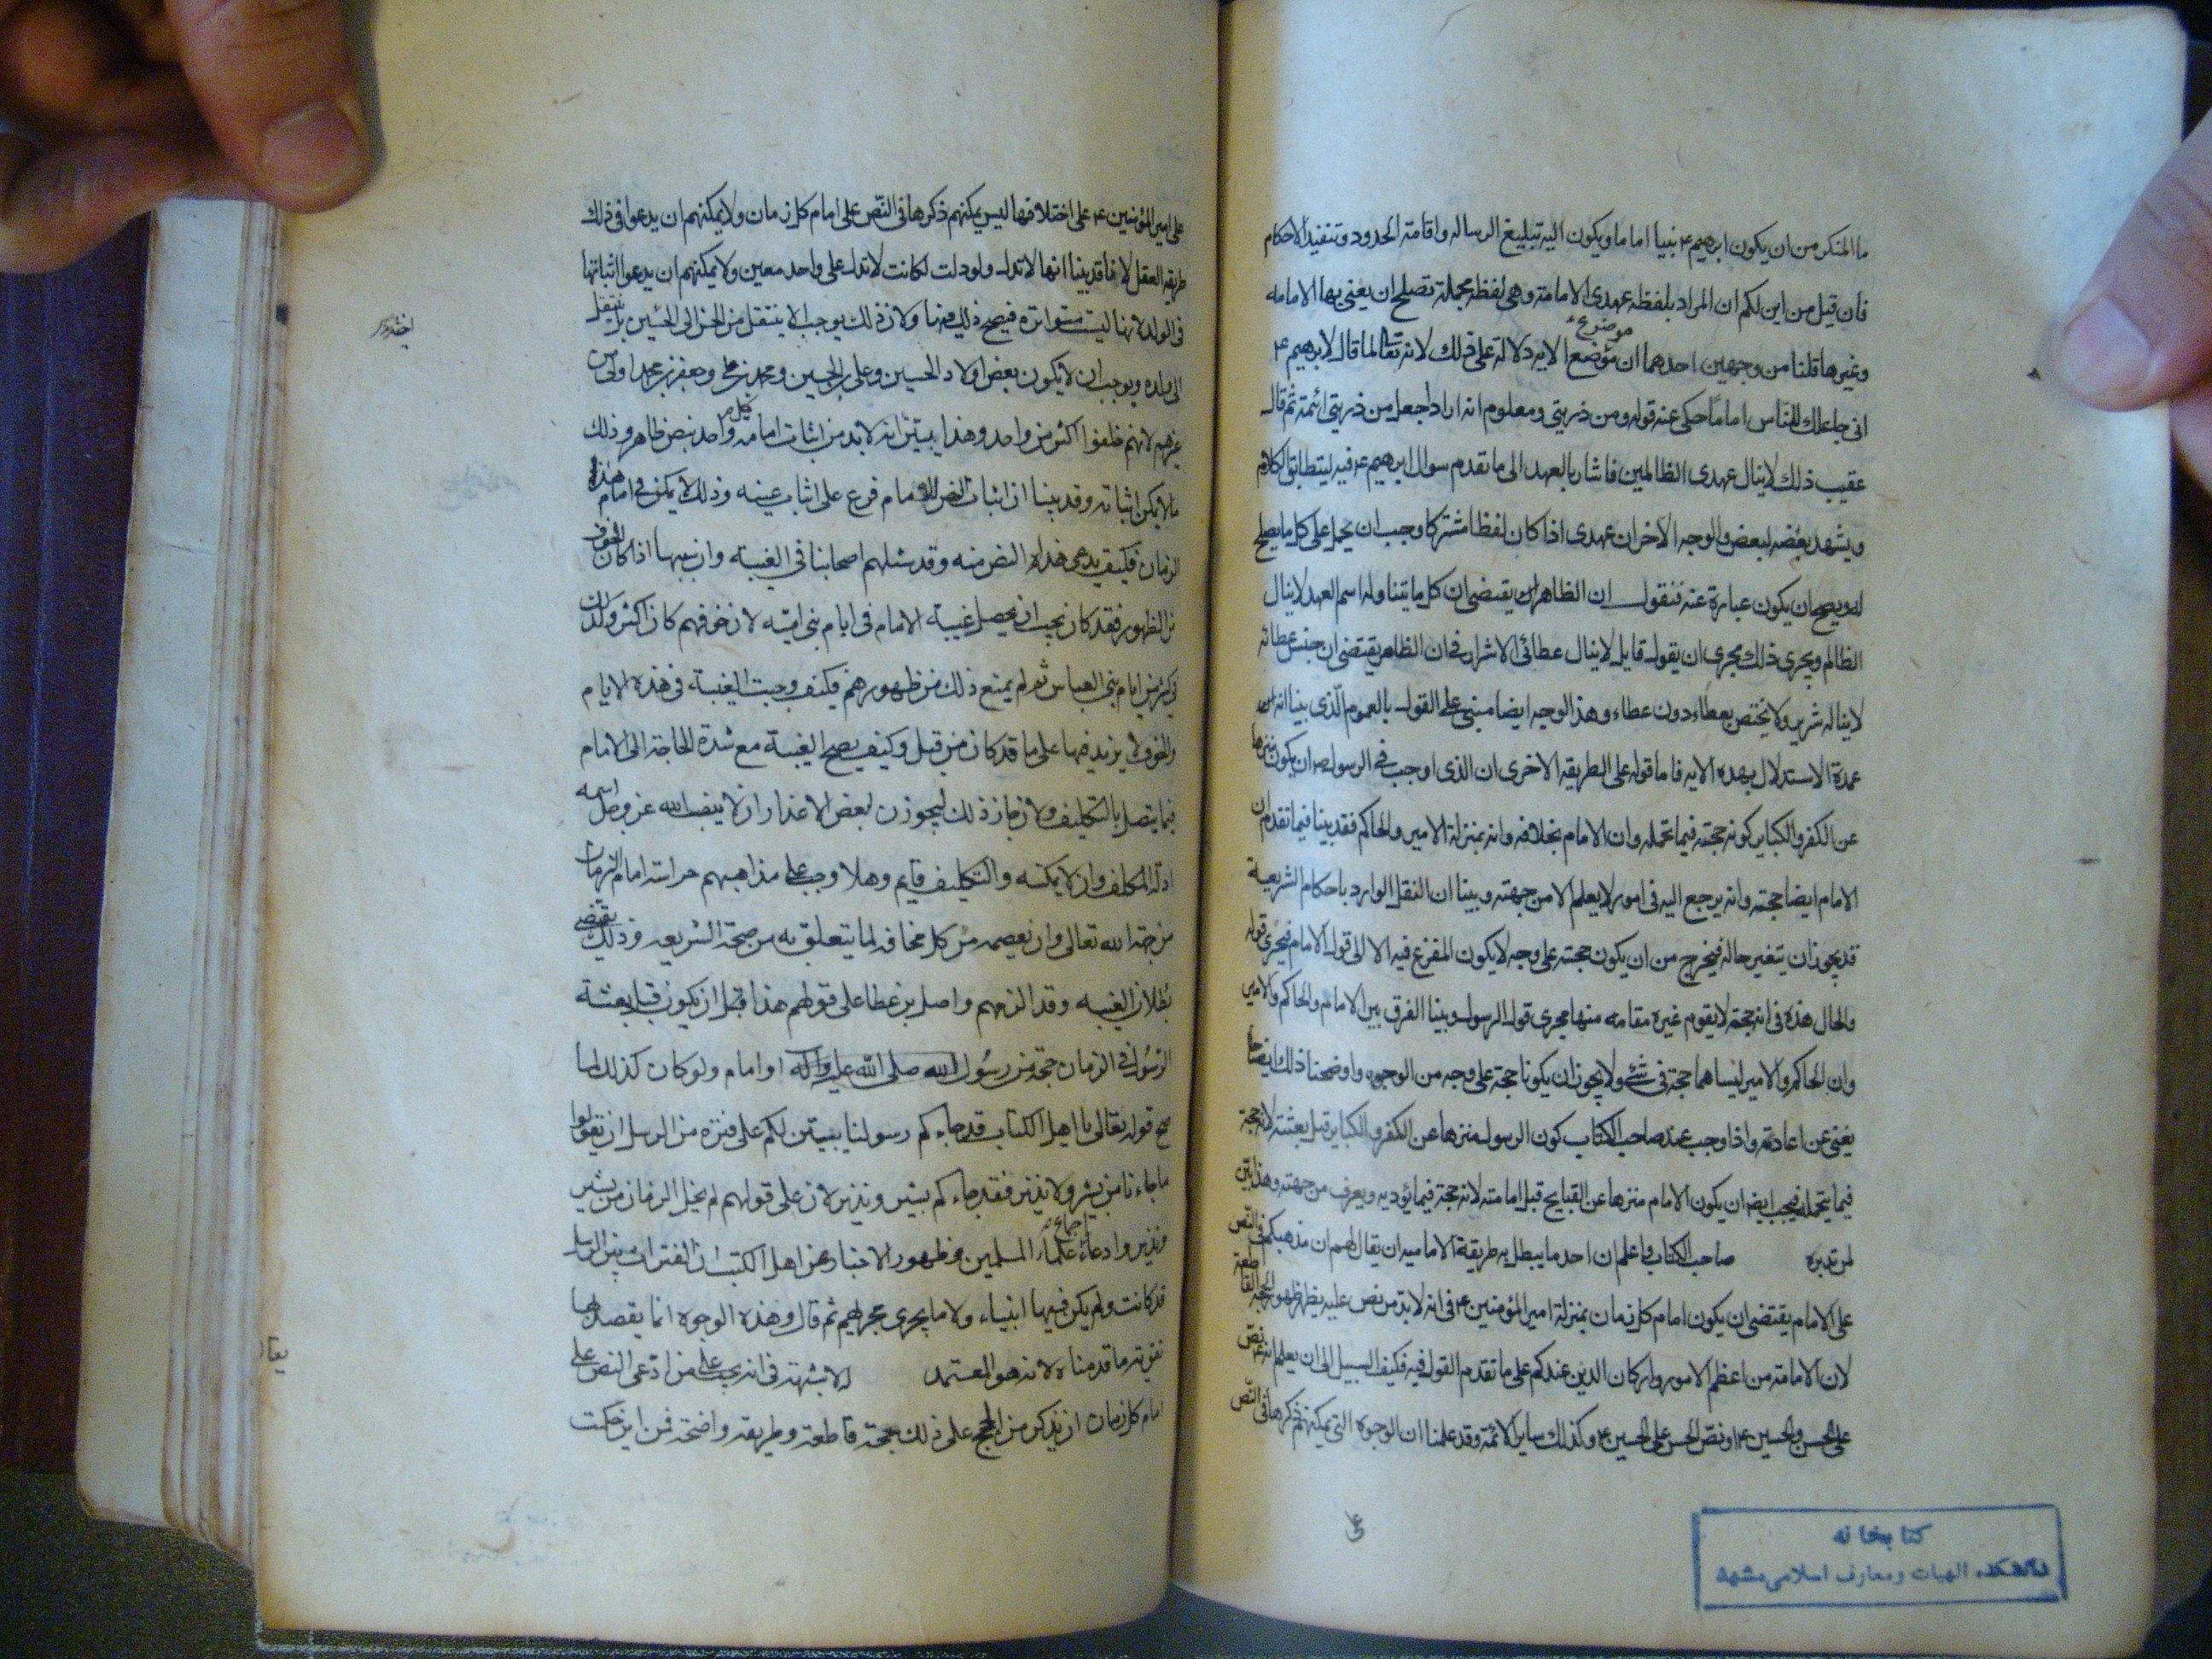 ما المنكر من ان يكون ابرهيم ۴ نبيا اماما ويكون اليه تبليغ الرساله واقامة الحدود وتنفيذ الاحكام
فان قيل من اين لكم ان المراد بلفظه عهدى الامامة وهى لفظه مجملة تصلح ان يعنى بها الامامه
وغيرها قلنا من وجهين احدهما ان موضع الايه دلالة على ذلك لانه تعالى لما قال لابرهيم ۴
موضوع
انى جاعلك للناس اماما حكى عنه قوله ومن ذريتى ومعلوم انه اراد اجعل من ذريتى ائمة ثم قال
عقيب ذلك لاينال عهدى الظالمين فاشار بالعهد الى ما تقدم سوال ابرهيم ۴ فيه ليتطابق الكلام
ويشهد بعضه لبعض والوجه الآخر ان عهدى اذا كان لفظا مشتركا وجب ان يحمل على كل مايصلح
له ويصح ان يكون عبارة عنه فنقول ان الظاهر يقتضى ان كل مايتناوله اسم العهد لاينال
الظالم ويجرى ذلك مجرى ان يقول قايل لاينال عطائى الاشرار فان الظاهر يقتضى ان جنس عطائه
لايناله شرير ولا يختص بعطاء دون عطاء وهذا الوجه ايضا مبنى على القول بالعموم الذى بينا انه
عمدة الاستدلال بهذه الايه فاما قوله على الطريقه الاخرى ان الذى اوجب فى الرسول ان يكون منزها
عن الكفر والكباير كونه حجة فيما تحمله وان الامام بخلافه وانه بمنزلة الامير والحاكم فقد بينا فيما تقدم ان
الامام ايضا حجة وانه يرجع اليه فى امور لا يعلم الا من جهته وبينا ان النقل الوارد باحكام الشريعة
قد يجوز ان يتغير حاله فيخرج من ان يكون حجة على وجه لايكون المفزع فيه الا الى قول الامام فيجرى قوله
والحال هذه فى انه حجة لايقوم غيره مقامه منها مجرى قول الرسول وبينا الفرق بين الامام والحاكم والامير
وان الحاكم والامير ليسا هما حجة فى شئ ولا يجوز ان يكونا حجة على وجه من الوجوه واوضحنا ذلك ايضاحا
يغنى عن اعادته واذا وجب عند صاحب الكتاب كون الرسول منزها عن الكفر والكباير قبل بعثته لانه حجة
فيما يتحمله فيجب ايضا ان يكون الامام منزها عن القبايح قبل امامته لانه حجة فيما يؤديه ويعرف من جهته وهذا بين
لمن تدبره صاحب الكتاب واعلم ان احد ما يبطل به طريقة الاماميه ان يقال لهم ان مذهبكم فى النص
على الامام يقتضى ان يكون امام كل زمان بمنزلة امير المؤمنين ۴ فى انه لابد من نص عليه يظهر ظهور الحجة القاطعة
لان الامامة من اعظم الامور واركان الدين عندكم على ما تقدم القول فيه فكيف السبيل الى ان يعلم انه ۴ نص
على الحسن والحسين ۴ او نص الحسن على الحسين ۴ وكذلك ساير الائمة وقد علمنا ان الوجوه التى يمكنهم ذكرها فى النص
كتابخانه
دانشكده الهيات ومعارف اسلامى مشهد
على امير المؤمنين ۴ على اختلافها ليس يمكنهم ذكرها فى النص على امام كل زمان ولا يمكنهم ان يدعوا فى ذلك
طريقه العقل لانا قد بينا انها لاتدل ولو دلت لكانت لاتدل على واحد معين ولا يمكنهم ان يدعوا اثباتها
فى الولد لانها ليست متواتره فيصح ذلك فيها ولان ذلك يوجب الا ينتقل من الحسن الى الحسين بل ينتقل
الى ولده ويوجب ان لايكون بعض اولاد الحسين وعلى بن الحسين ومحمد بن على وجعفر بن محمد اولى من
غيرهم لانهم خلفوا اكثر من واحد وهذا يبين انه لابد من اثبات امامه كل واحد بنص ظاهر وذلك
ما لا يمكن اثباته وقد بينا ان اثبات النص للامام فرع على اثبات عينه وذلك لا يمكن فى امام هذا
الزمان فكيف يدعى هذا النص منه وقد سئلهم اصحابنا فى الغيبة وان سببها اذا كان الخوف
من الظهور فقد كان يجب ان يحصل غيبة الامام فى ايام بنى امية لان خوفهم كان اكثر وكان
فى كثير من ايام بنى العباس ثم لم يمنع ذلك من ظهورهم فكيف وجبت الغيبة فى هذه الايام
والخوف لا يزيد فيها على ما قد كان من قبل وكيف يصح الغيبة مع شدة الحاجة الى الامام
فيما يتصل بالتكليف ولان جاز ذلك ليجوزن لبعض الاعذار ان لا ينصب الله عز وجل اسمه
ادلة المكلف وان لا يمكنه والتكليف قايم وهلا وجب على مذاهبهم حراسة امام الزمان
من جهة الله تعالى وان يعصمه من كل مخافه لما يتعلق به من صحة الشريعه وذلك يقتضى
بطلان الغيبه وقد الزمهم واصل بن عطا على قولهم هذا قبل ان يكون قبل بعثة
الرسول فى الزمان حجة من رسول الله صلى الله عليه وآله او امام ولو كان كذلك لما
صح قوله تعالى يا اهل الكتاب قد جاءكم رسولنا يبين لكم على فترة من الرسل ان تقولوا
ما جاءنا من بشير ولا نذير فقد جاءكم بشير ونذير لان على قولهم لم يخل الزمان من بشير
ونذير وادعاء علماء المسلمين وظهور الاخبار عن اهل الكتب ان الفترات بين الرسل
اجماع
قد كانت ولم يكن فيها انبياء ولا ما يجرى مجراهم ثم قال وهذه الوجوه انما يقصد بها
تقوية ما قدمناه لانه هو المعتمد لا شبهة فى انه يجب على من ادعى النص على
امام كل زمان ان يذكر من الحجج على ذلك حجة قاطعة وطريقه واضحة فمن اين حكمت